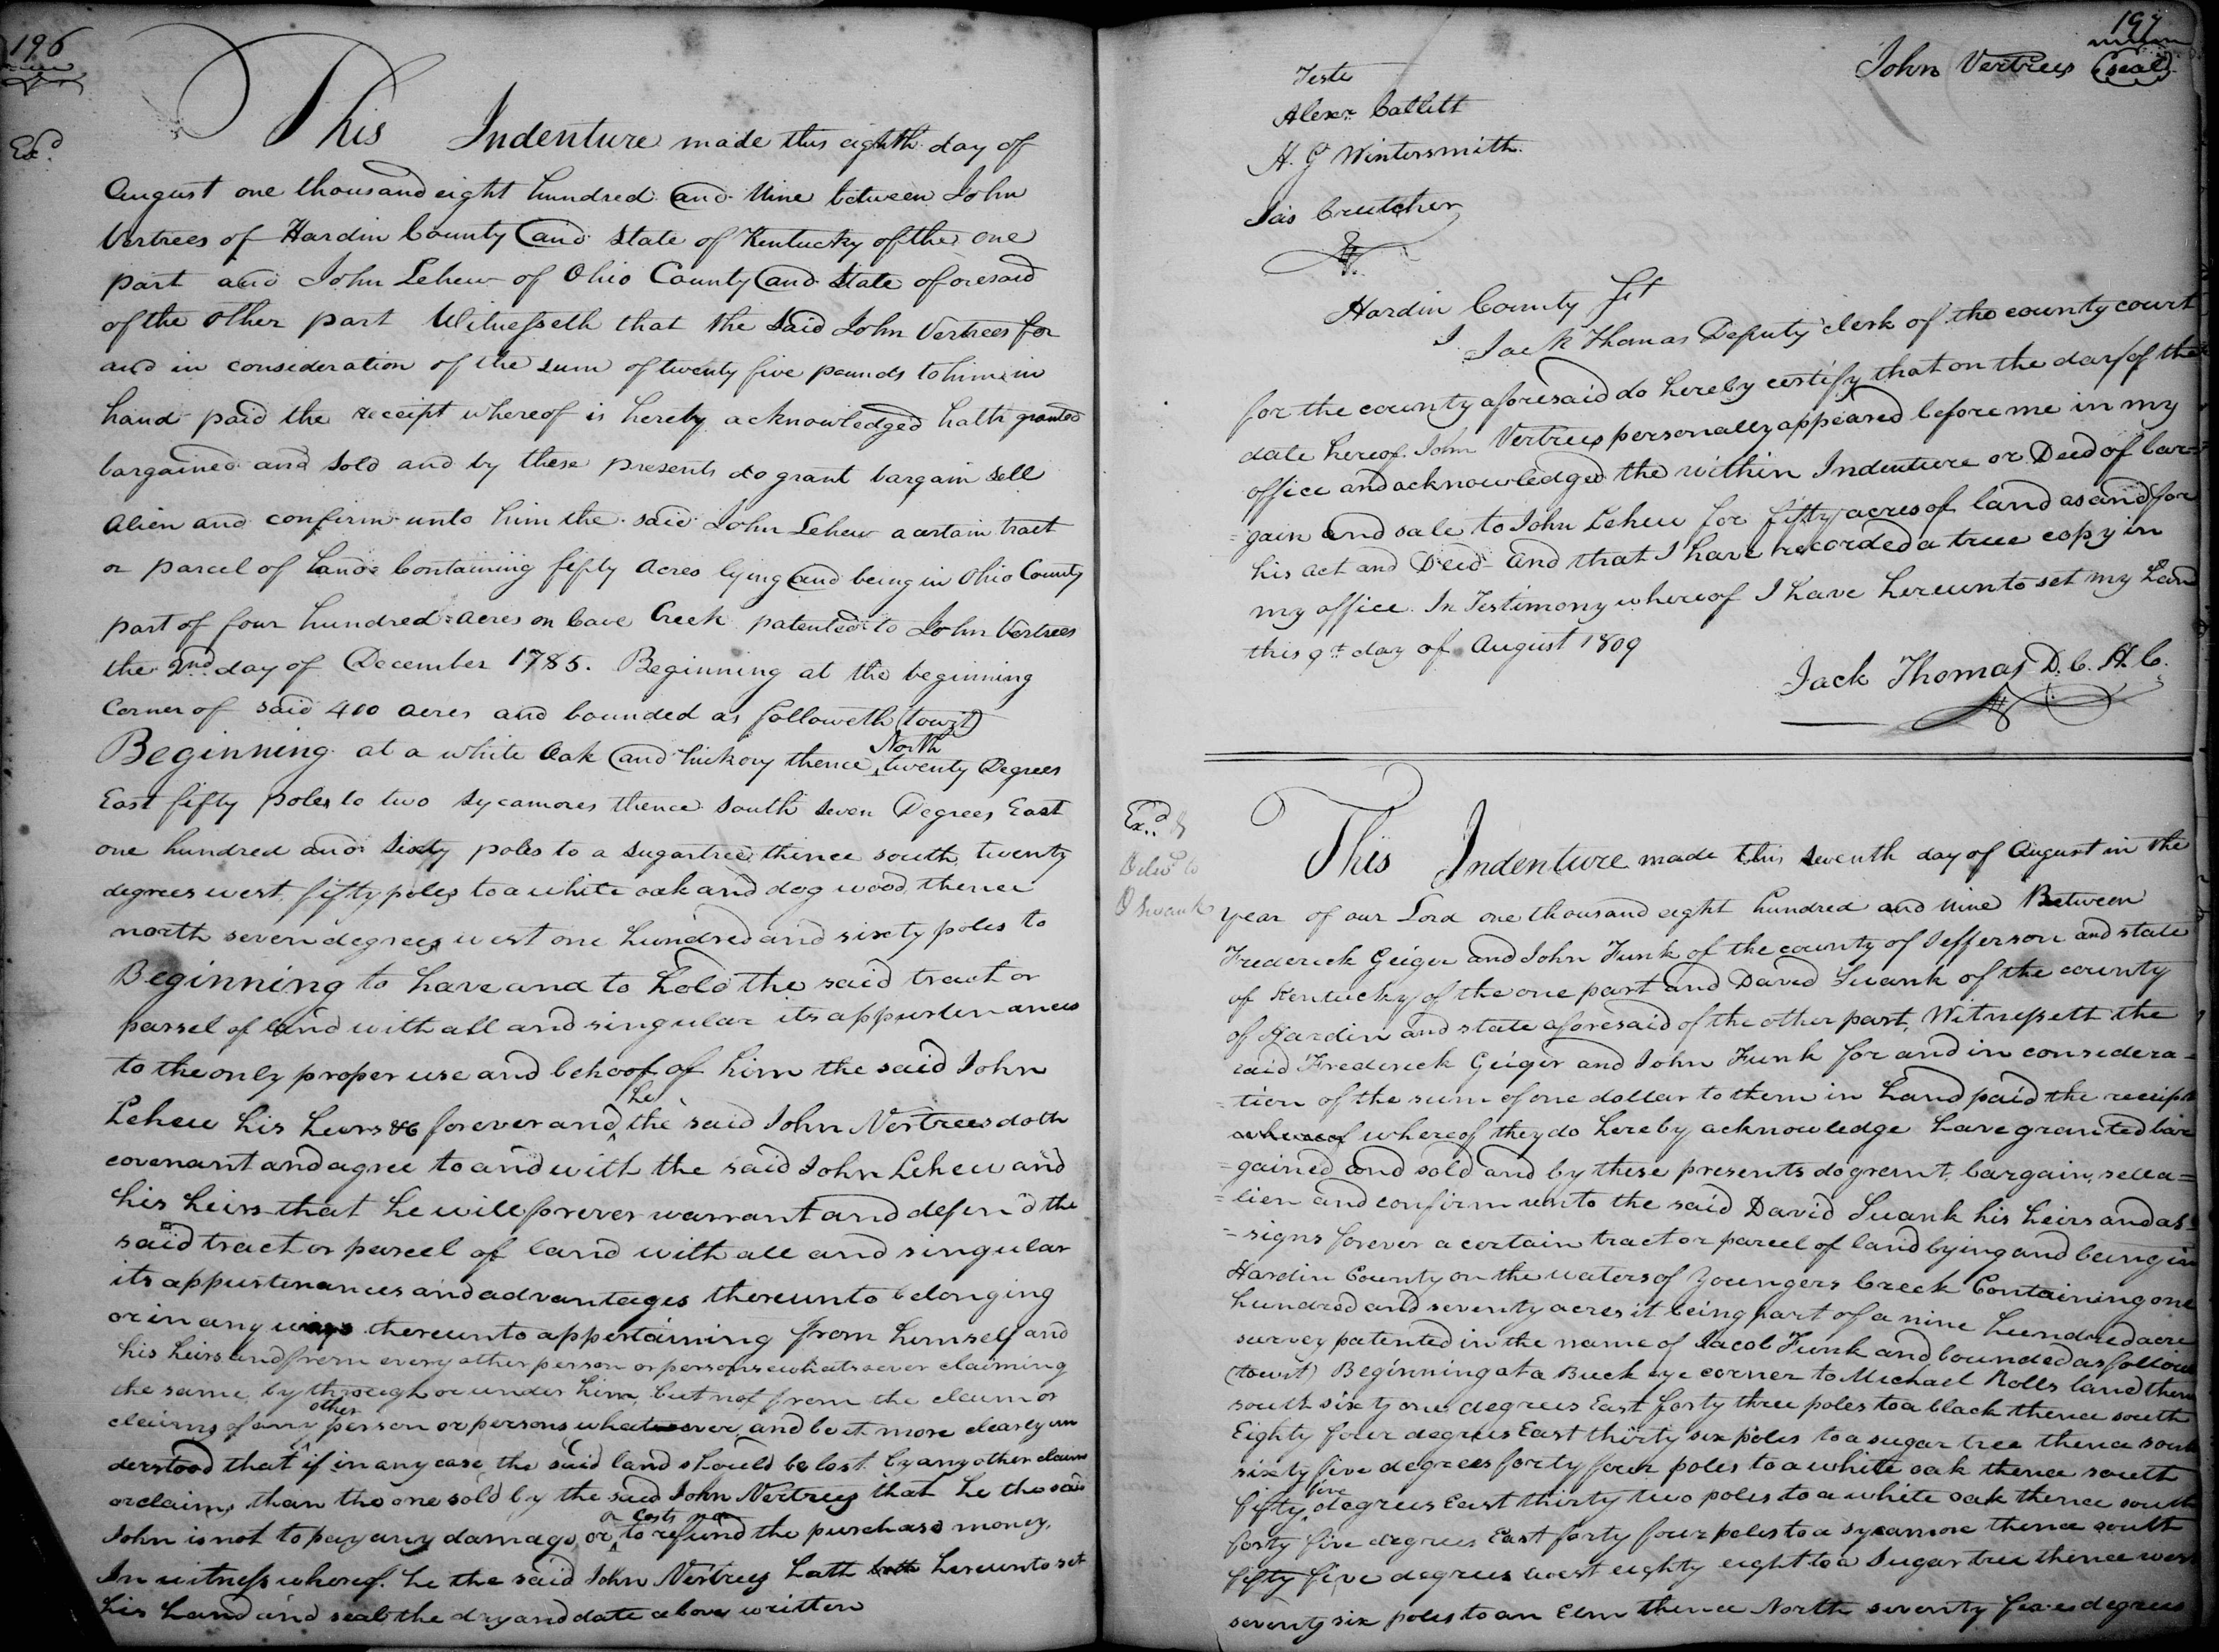 196
Exd.
This Indenture made this eighth day of
August one thousand eight hundred and Nine between John
Vertrees of Hardin County and State of Kentucky of the one
part and John Lehew of Ohio County and State of oresaid
of the other part Witnesseth that the Said John Vertrees for
and in consideration of the sum of twenty five pounds to him in
hand paid the receipt whereof is hereby acknowledged hath granted
bargained and Sold and by these presents do grant bargain Sell
Alien and confirm unto him the said John Lehew a certain tract
or parcel of Land Containing fifty Acres lying and being in Ohio County
part of four hundred acres on Cave Creek patented to John Vertrees
the 2nd day of December 1785. Beginning at the beginning
Corner of said 400 acres and bounded as followeth (towit)
Beginning at a white Oak and hickory thence North twenty Degrees
East fifty poles to two Sycamores thence South Seven Degrees East
one hundred and Sixty poles to a Sugartree thence south twenty
degrees west fifty poles to a white oak and dog wood, thence
north seven degrees west one hundred and sixty poles to
Beginning to have and to hold the said tract or
parsel of land with all and singular its appurtenances
to the only proper use and behoof of him the said John
Lehew his heirs &c forever and he the said John Vertrees doth
covenant and agree to and with the said John Lehew and
his heirs that he will forever warrant and defend the
said tract or parcel of land with all and singular
its appurtenances and advantages thereunto belonging
or in any ways thereunto appertaining from himself and
his heirs and from every other person or persons whatsoever claiming
the same by through or under him, but not from the claim or
claims of any other person or persons whatsoever and be it more clearly un
derstood that if in any case the said land should be lost by any other claim
or claims than the one sold by the said John Vertrees that he the said
John is not to pay any damage or costs nor to refund the purchase money.
In witness whereof he the said John Vertrees hath hereunto set
his hand and seal the day and date above written
197
John Vertrees (seal)
Teste
Alexr. Catlett
H. G Wintersmith.
Jas Crutcher
Hardin County Sct
I Jack Thomas Deputy clerk of the county court
for the county aforesaid do hereby certify that on the day of the
date hereof John Vertrees personally appeared before me in my
office and acknowledged the within Indenture or Deed of bar=
=gain and sale to John Lehew for fifty acres of land as and for
his act and Deed and that I have recorded a true copy in
my office. In Testimony whereof I have hereunto set my hand
this 9th day of August 1809
Jack Thomas D. C. H. C.
Exd. &
Delivd to
D Swank
This Indenture made this Seventh day of August in the
year of our Lord one thousand eight hundred and Nine Between
Frederick Geiger and John Funk of the county of Jefferson and state
of Kentucky of the one part and David Swank of the county
of Hardin and state aforesaid of the other part, Witnesseth the
said Frederick Geiger and John Funk for and in considera=
=tion of the sum of one dollar to them in hand paid the receipt
whereof whereof they do hereby acknowledge have granted bar
=gained and sold and by these presents do grant, bargain, sell a=
=lien and confirm unto the said David Swank his heirs and as=
=signs forever a certain tract or parcel of land lying and being in
Hardin County on the waters of Youngers Creek Containing one
hundred and seventy acres it being part of a nine hundred acre
survey patented in the name of Jacob Funk and bounded as follow
(towit) Beginning at a Buck eye corner to Michael Rolls land then
south sixty one degrees East forty three poles to a black thence south
Eighty four degrees East thirty six poles to a sugar tree thence south
sixty five degrees forty four poles to a white oak thence south
fifty five degrees East thirty two poles to a white oak thence south
forty five degrees East forty four poles to a sycamore thence south
fifty five degrees west eighty eight to a Sugar tree thence west
seventy six poles to an Elm thence North seventy five degrees